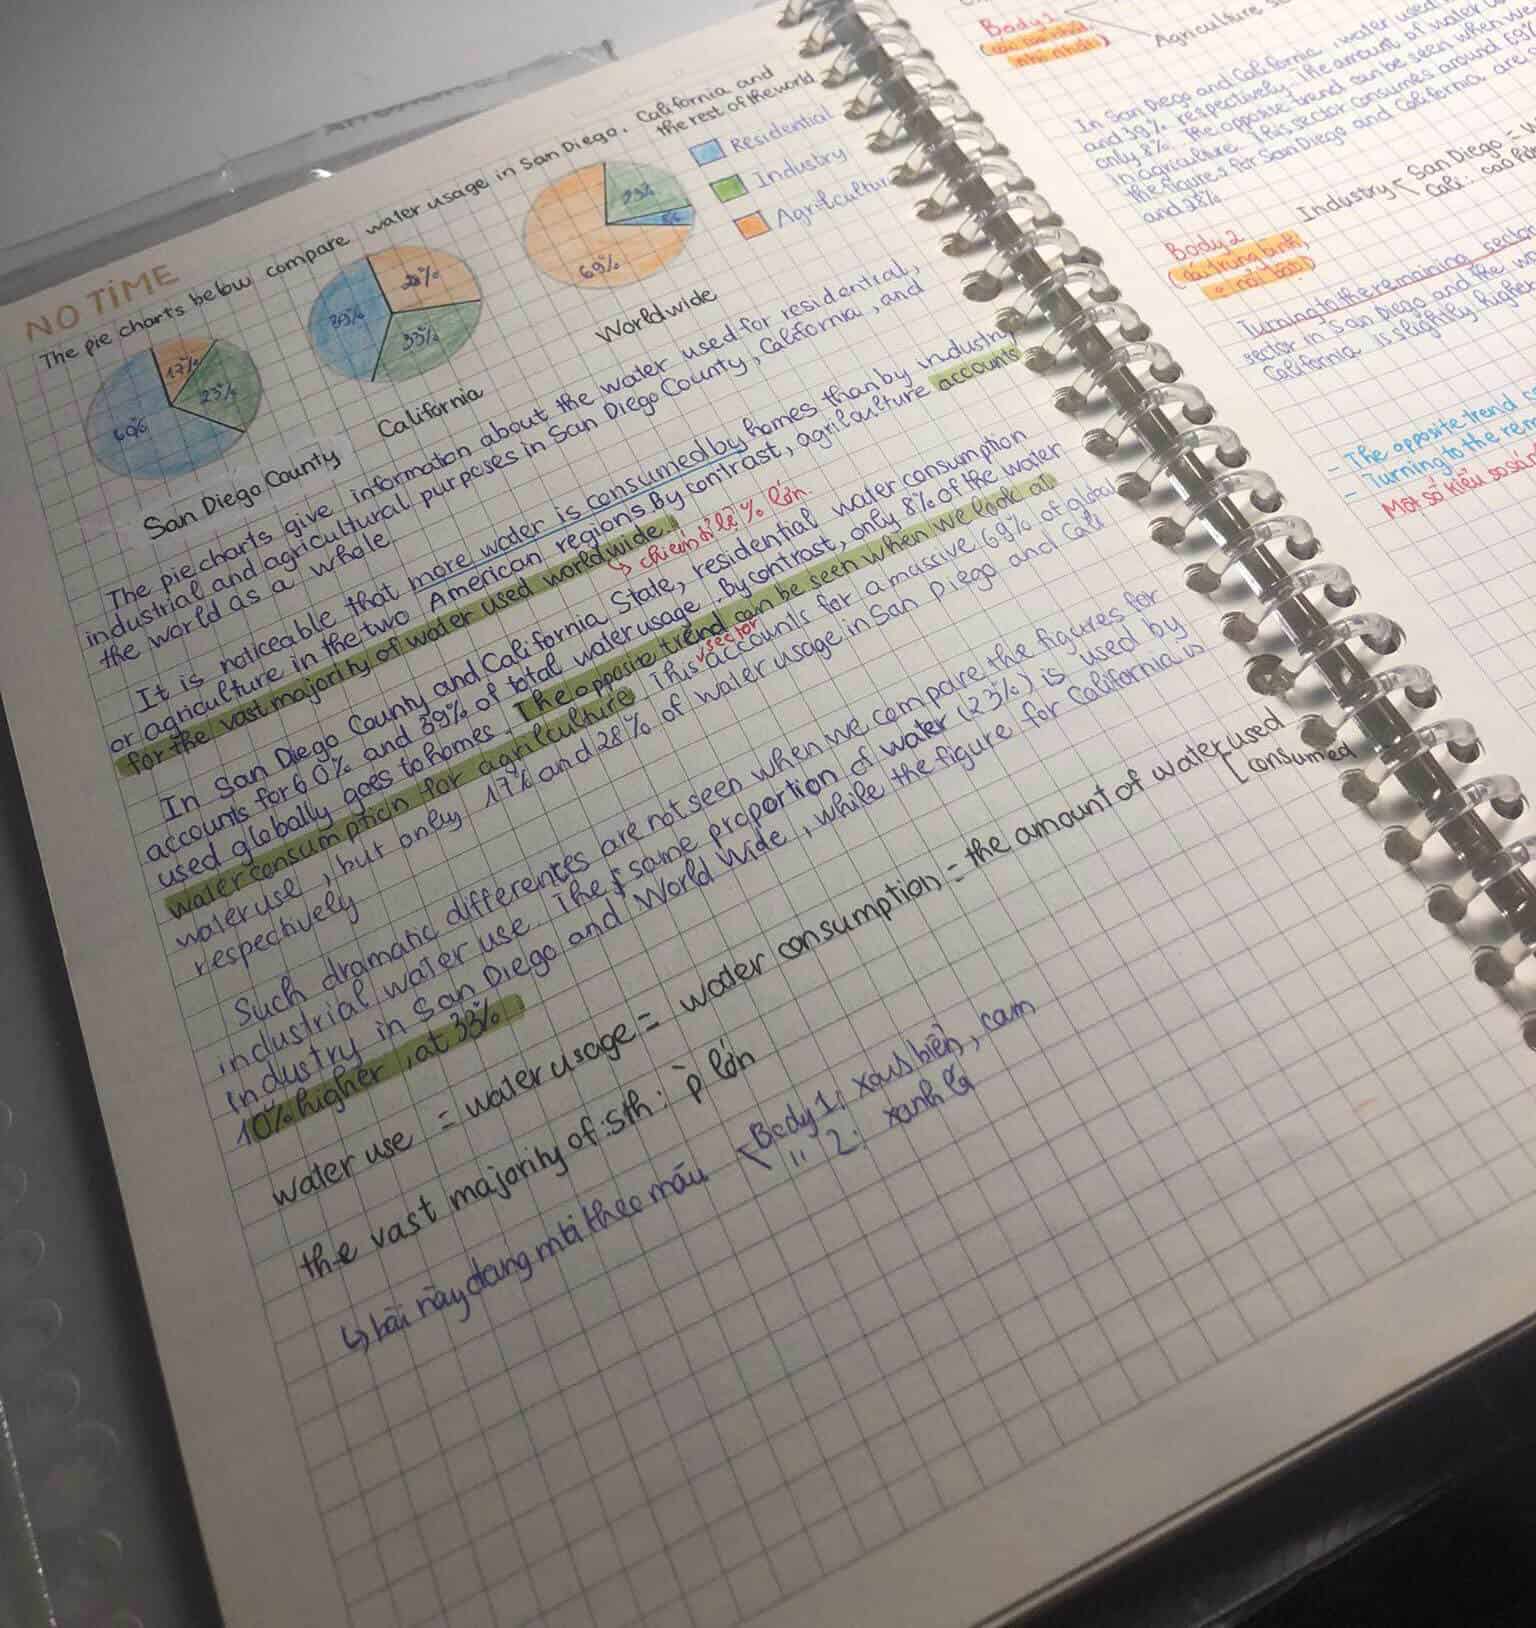 NO TIME
The pie charts below compare water usage in San Diego, California and
the rest of the world.
Residential
Industry
Agriculture
60%
17%
23%
San Diego County
39%
28%
33%
California
23%
8%
69%
Worldwide
The pie charts give information about the water used for residential,
industrial and agricultural purposes in San Diego County, California, and
the world as a whole.
It is noticeable that more water is consumed by homes than by industry
or agriculture in the two American regions. By contrast, agriculture accounts
for the vast majority of water used worldwide.
↳ chiếm tỉ lệ % lớn.
In San Diego County and California State, residential water consumption
accounts for 60% and 39% of total water usage. By contrast, only 8% of the water
used globally goes to homes. The opposite trend can be seen when we look at
water consumption for agriculture. This sector accounts for a massive 69% of global
water use, but only 17% and 28% of water usage in San Diego and Cali
respectively
Such dramatic differences are not seen when we compare the figures for
industrial water use. The same proportion of water (23%) is used by
industry in San Diego and World Wide, while the figure for California is
10% higher, at 33%.
water use = water usage = water consumption = the amount of water used
consumed
the vast majority of: sth: p̀ lớn
↳ bài này dang mới theo mẫu
Body 1: xanh biển, cam
" 2: xanh lá
Body 1
Agriculture
In San Diego and California, water used
and 39% respectively. The amount of water
only 8%. The opposite trend can be seen when we
in agriculture. This sector consumes around 69%
the figures for San Diego and California are
and 28%
Industry
San Diego =
Cali: cao
Body 2
(cái trung bình
Turning to the remaining sector
sector in San Diego and the
California is slightly higher
- The opposite trend
- Turning to the
Một số kiểu so sánh